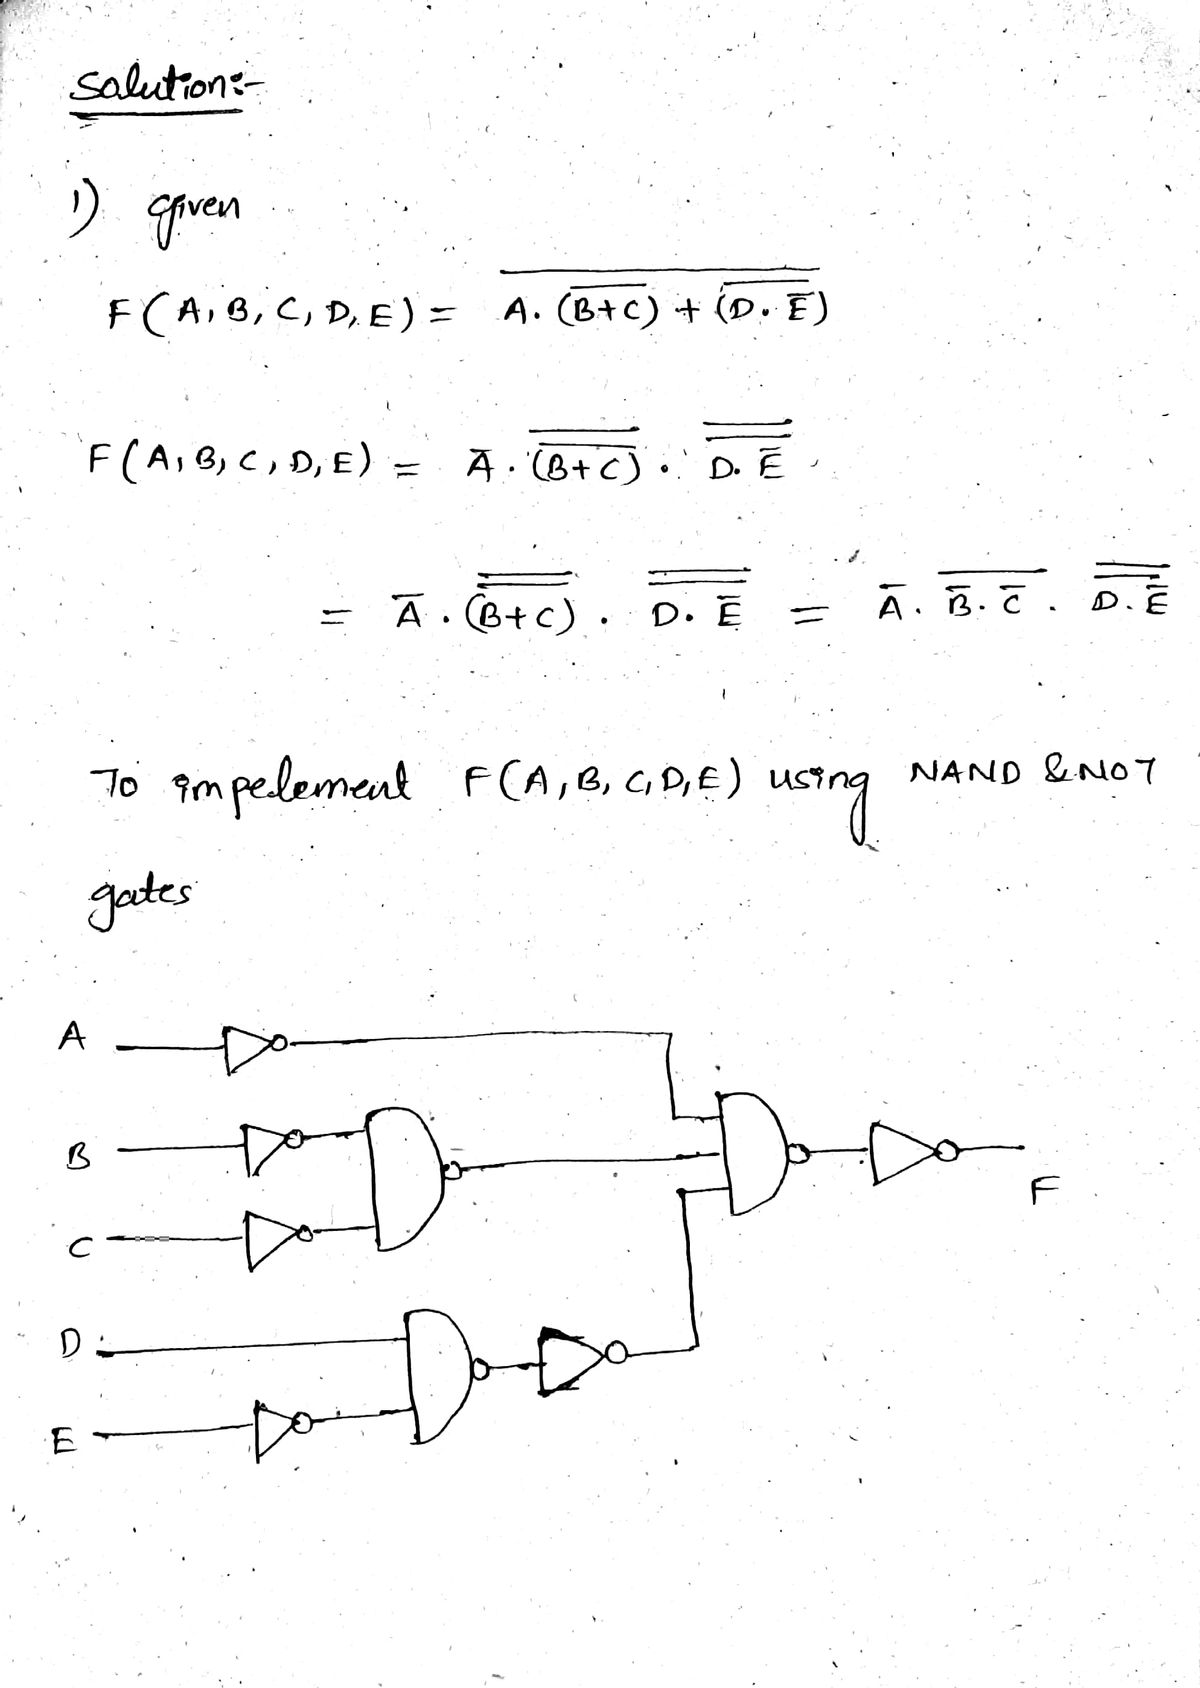 Solution:-
1) given
F(A,B,C,D,E) = \overline{A.\overline{(B+C)} + \overline{(D.\overline{E})}}
F(A,B,C,D,E) = \overline{A}.\overline{\overline{(B+C)}}.\overline{\overline{D.\overline{E}}}
= \overline{A}.\overline{\overline{(B+C)}}.\overline{\overline{D.\overline{E}}} = \overline{A}.\overline{\overline{B}.\overline{C}}.\overline{\overline{D.\overline{E}}}
To impelement F(A,B,C,D,E) using NAND & NOT
gates
A
B
C
D
E
F